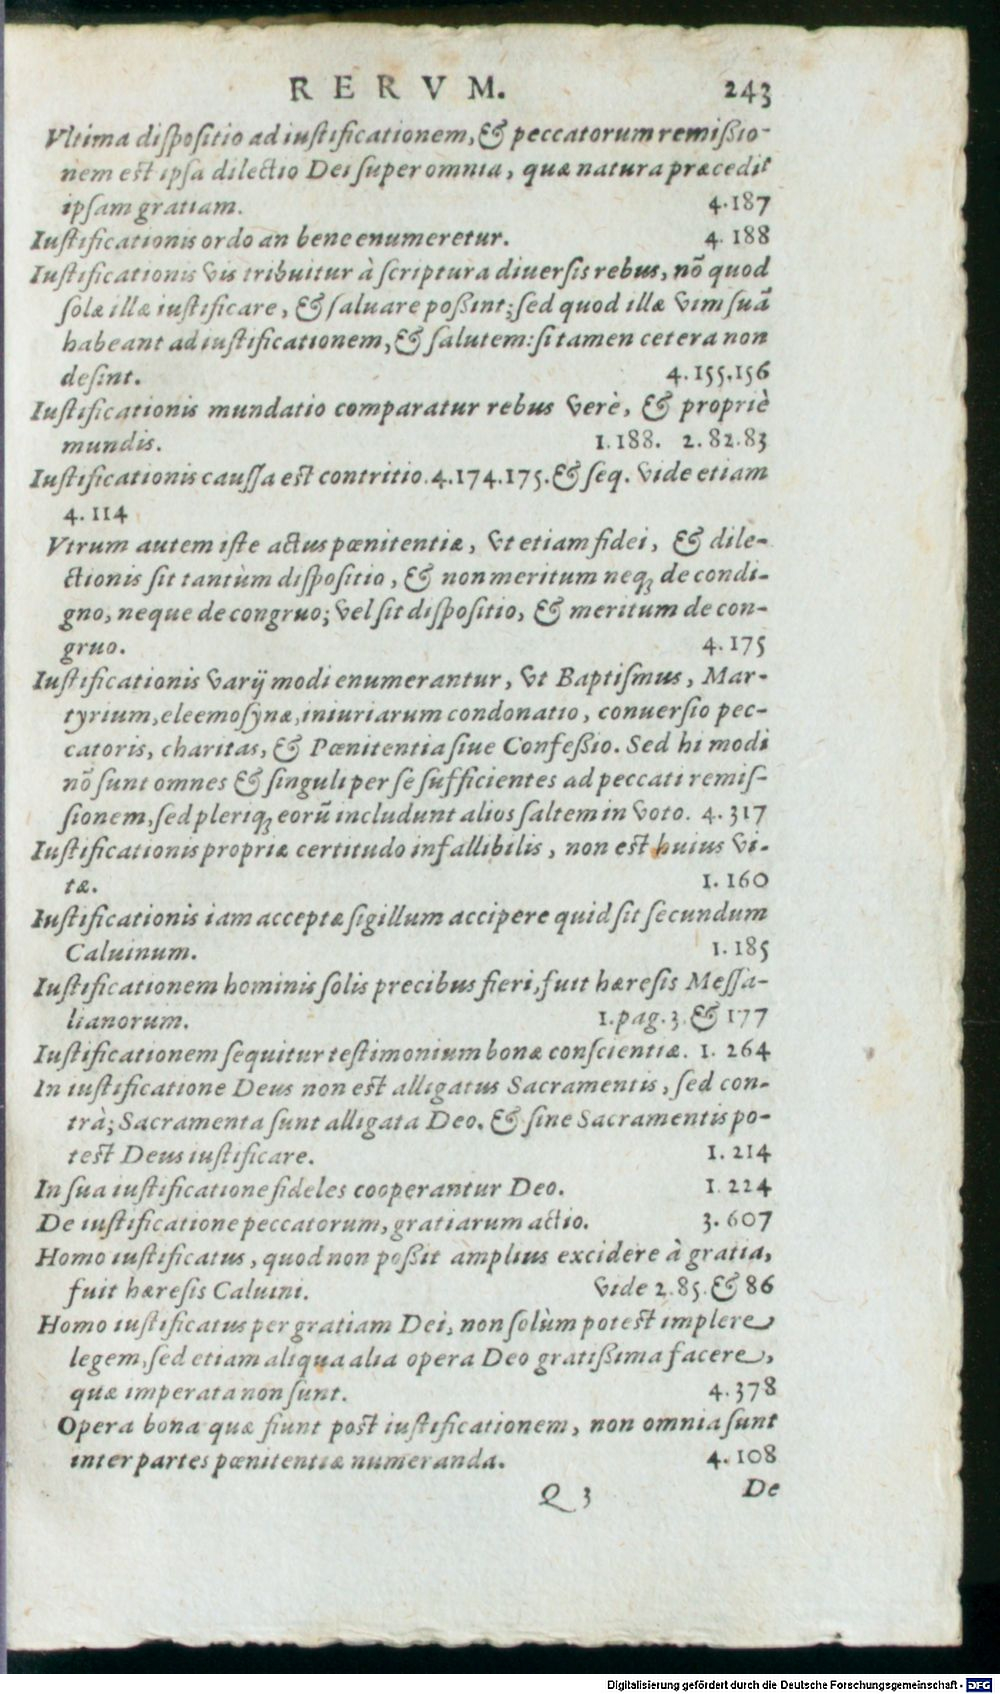 RERVM. 243
Vltima dispositio ad iustificationem, & peccatorum remißio-
nem est ipsa dilectio Dei super omnia, quæ natura præcedit
ipsam gratiam. 4.187
Iustificationis ordo an bene enumeretur. 4. 188
Iustificationis vis tribuitur à scriptura diuersis rebus, nō quod
solæ illæ iustificare, & saluare poßint; sed quod illæ vim suā
habeant ad iustificationem, & salutem: si tamen cetera non
desint. 4. 155.156
Iustificationis mundatio comparatur rebus verè, & propriè
mundis. 1.188. 2.82.83
Iustificationis caussa est contritio. 4.174.175. & seq. vide etiam
4. 114
Vtrum autem iste actus pœnitentiæ, vt etiam fidei, & dile-
ctionis sit tantùm dispositio, & non meritum neqꝫ de condi-
gno, neque de congruo; vel sit dispositio, & meritum de con-
gruo. 4. 175
Iustificationis varij modi enumerantur, vt Baptismus, Mar-
tyrium, eleemosynæ, iniuriarum condonatio, conuersio pec-
catoris, charitas, & Pœnitentia siue Confeßio. Sed hi modi
nō sunt omnes & singuli per se sufficientes ad peccati remis-
sionem, sed pleriqꝫ eorū includunt alios saltem in voto. 4. 317
Iustificationis propriæ certitudo infallibilis, non est huius vi-
tæ. 1. 160
Iustificationis iam acceptæ sigillum accipere quid sit secundum
Caluinum. 1. 185
Iustificationem hominis solis precibus fieri, fuit hæresis Messa-
lianorum. 1.pag.3. & 177
Iustificationem sequitur testimonium bonæ conscientiæ. 1. 264
In iustificatione Deus non est alligatus Sacramentis, sed con-
trà; Sacramenta sunt alligata Deo. & sine Sacramentis po-
test Deus iustificare. 1. 214
In sua iustificatione fideles cooperantur Deo. 1. 224
De iustificatione peccatorum, gratiarum actio. 3. 607
Homo iustificatus, quod non poßit amplius excidere à gratia,
fuit hæresis Caluini. vide 2.85. & 86
Homo iustificatus per gratiam Dei, non solùm potest implere
legem, sed etiam aliqua alia opera Deo gratißima facere,
quæ imperata non sunt. 4.378
Opera bona quæ fiunt post iustificationem, non omnia sunt
inter partes pœnitentiæ numeranda. 4. 108
Q 3 De
Digitalisierung gefördert durch die Deutsche Forschungsgemeinschaft - DFG